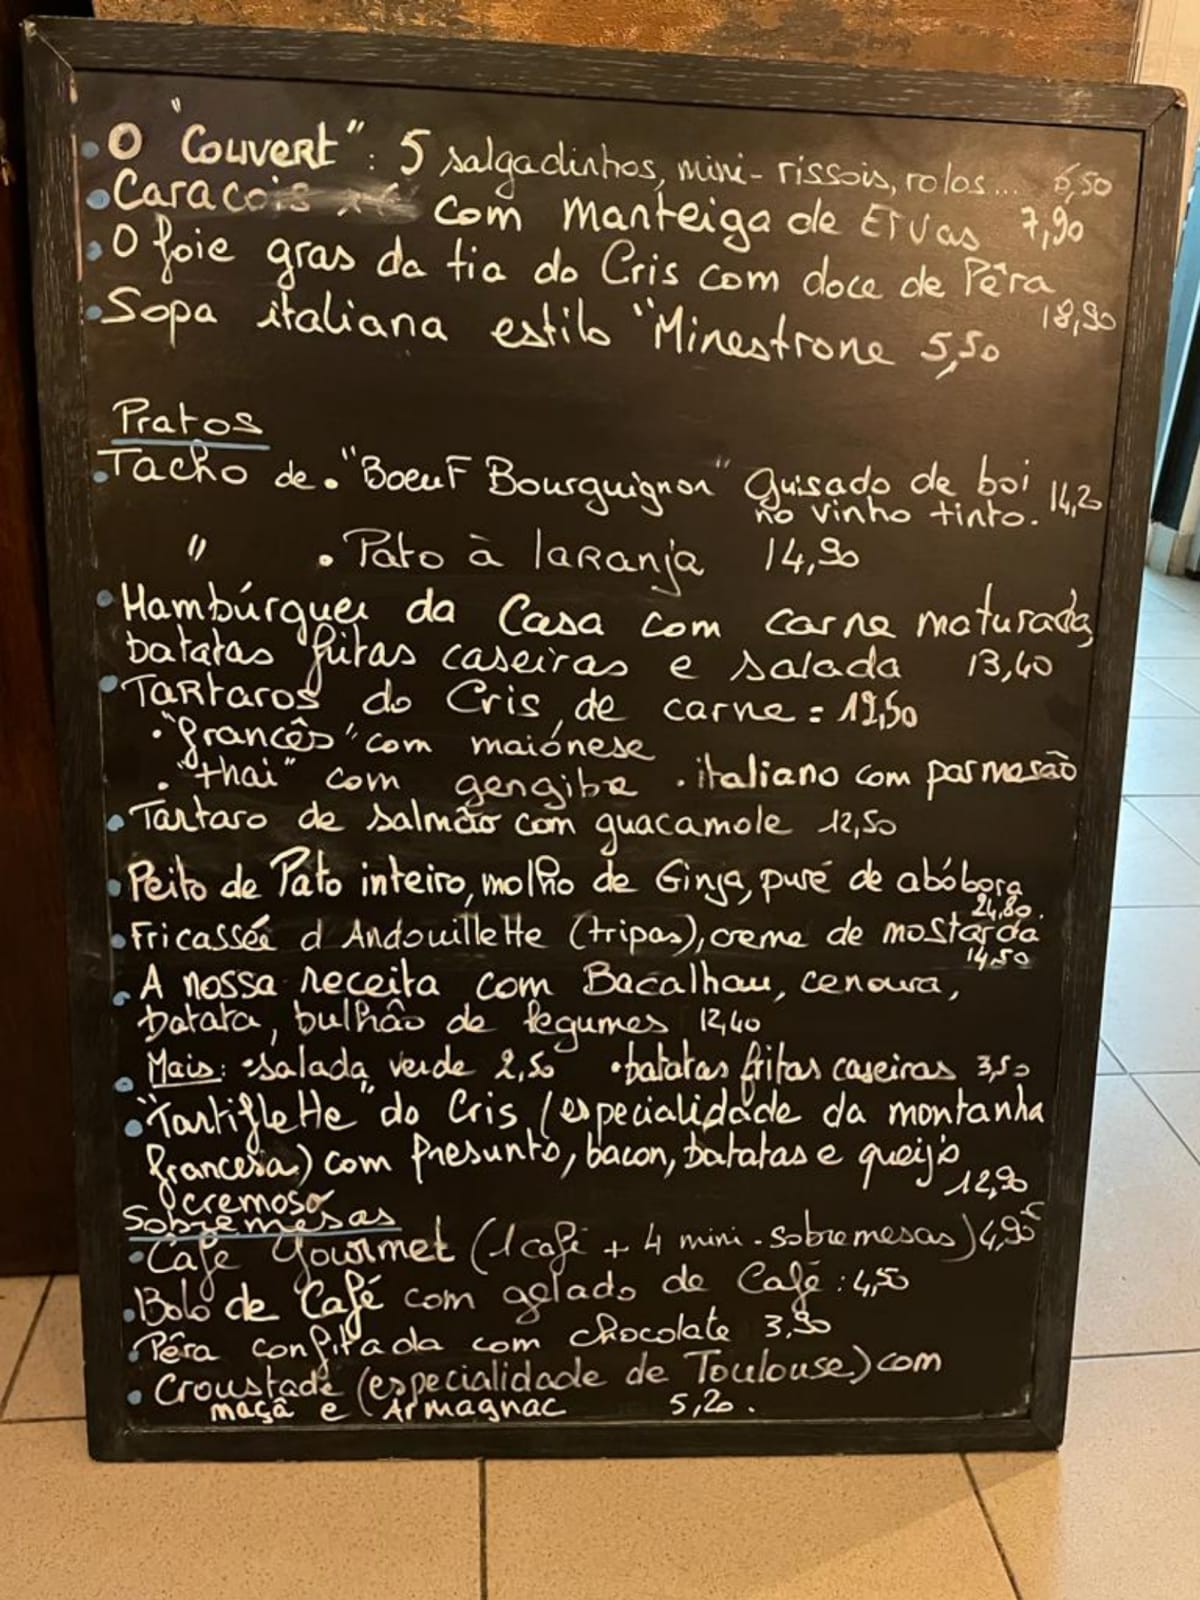 • O "Couvert" : 5 salgadinhos, mini-rissois, rolos... 6,50
• Caracois com manteiga de Ervas 7,90
• O foie gras da tia do Cris com doce de Pêra
18,90
• Sopa italiana estilo "Minestrone 5,50
Pratos
• Tacho de • "Boeuf Bourguignon" Guisado de boi 14,20
no vinho tinto.
" • Pato à laranja 14,90
• Hambúrguer da Casa com carne maturada,
batatas fritas caseiras e salada 13,40
• Tartaros do Cris, de carne = 12,50
• "francês" com maiónese
• "thai" com gengibre • italiano com parmesão
• Tártaro de salmão com guacamole 12,50
• Peito de Pato inteiro, molho de Ginja, puré de abóbora
24,80.
• Fricassée d Andouillette (tripas), creme de mostarda
14,50
• A nossa receita com Bacalhau, cenoura,
batata, bulhão de legumes 12,40
• Mais: • salada verde 2,50 • batatas fritas caseiras 3,50
• "Tartiflette" do Cris (especialidade da montanha
francesa) com presunto, bacon, batatas e queijo
cremoso 12,90
Sobremesas
• Café Gourmet (1 café + 4 mini-sobremesas) 4,90€
• Bolo de Café com gelado de Café : 4,50
• Pêra confitada com chocolate 3,90
• Croustade (especialidade de Toulouse) com
maçã e (Armagnac 5,20.